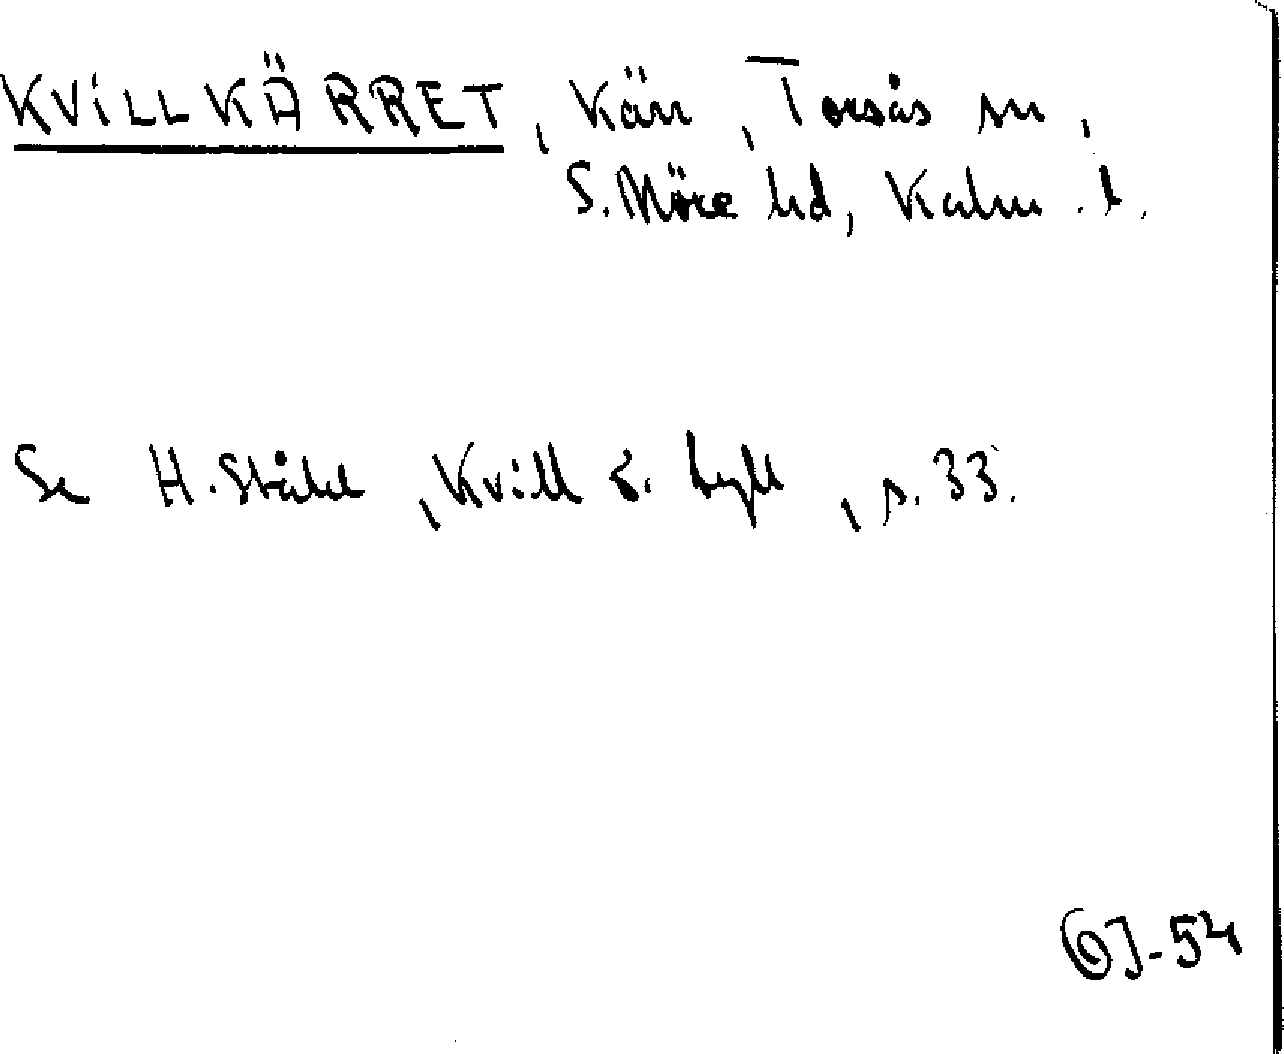 KVILLKÄRRET, Kärr, Torsås sn,
S. Möre hd, Kalm. l.
Se H. Ståhl, Kvill o. tyll, s. 33.
-54